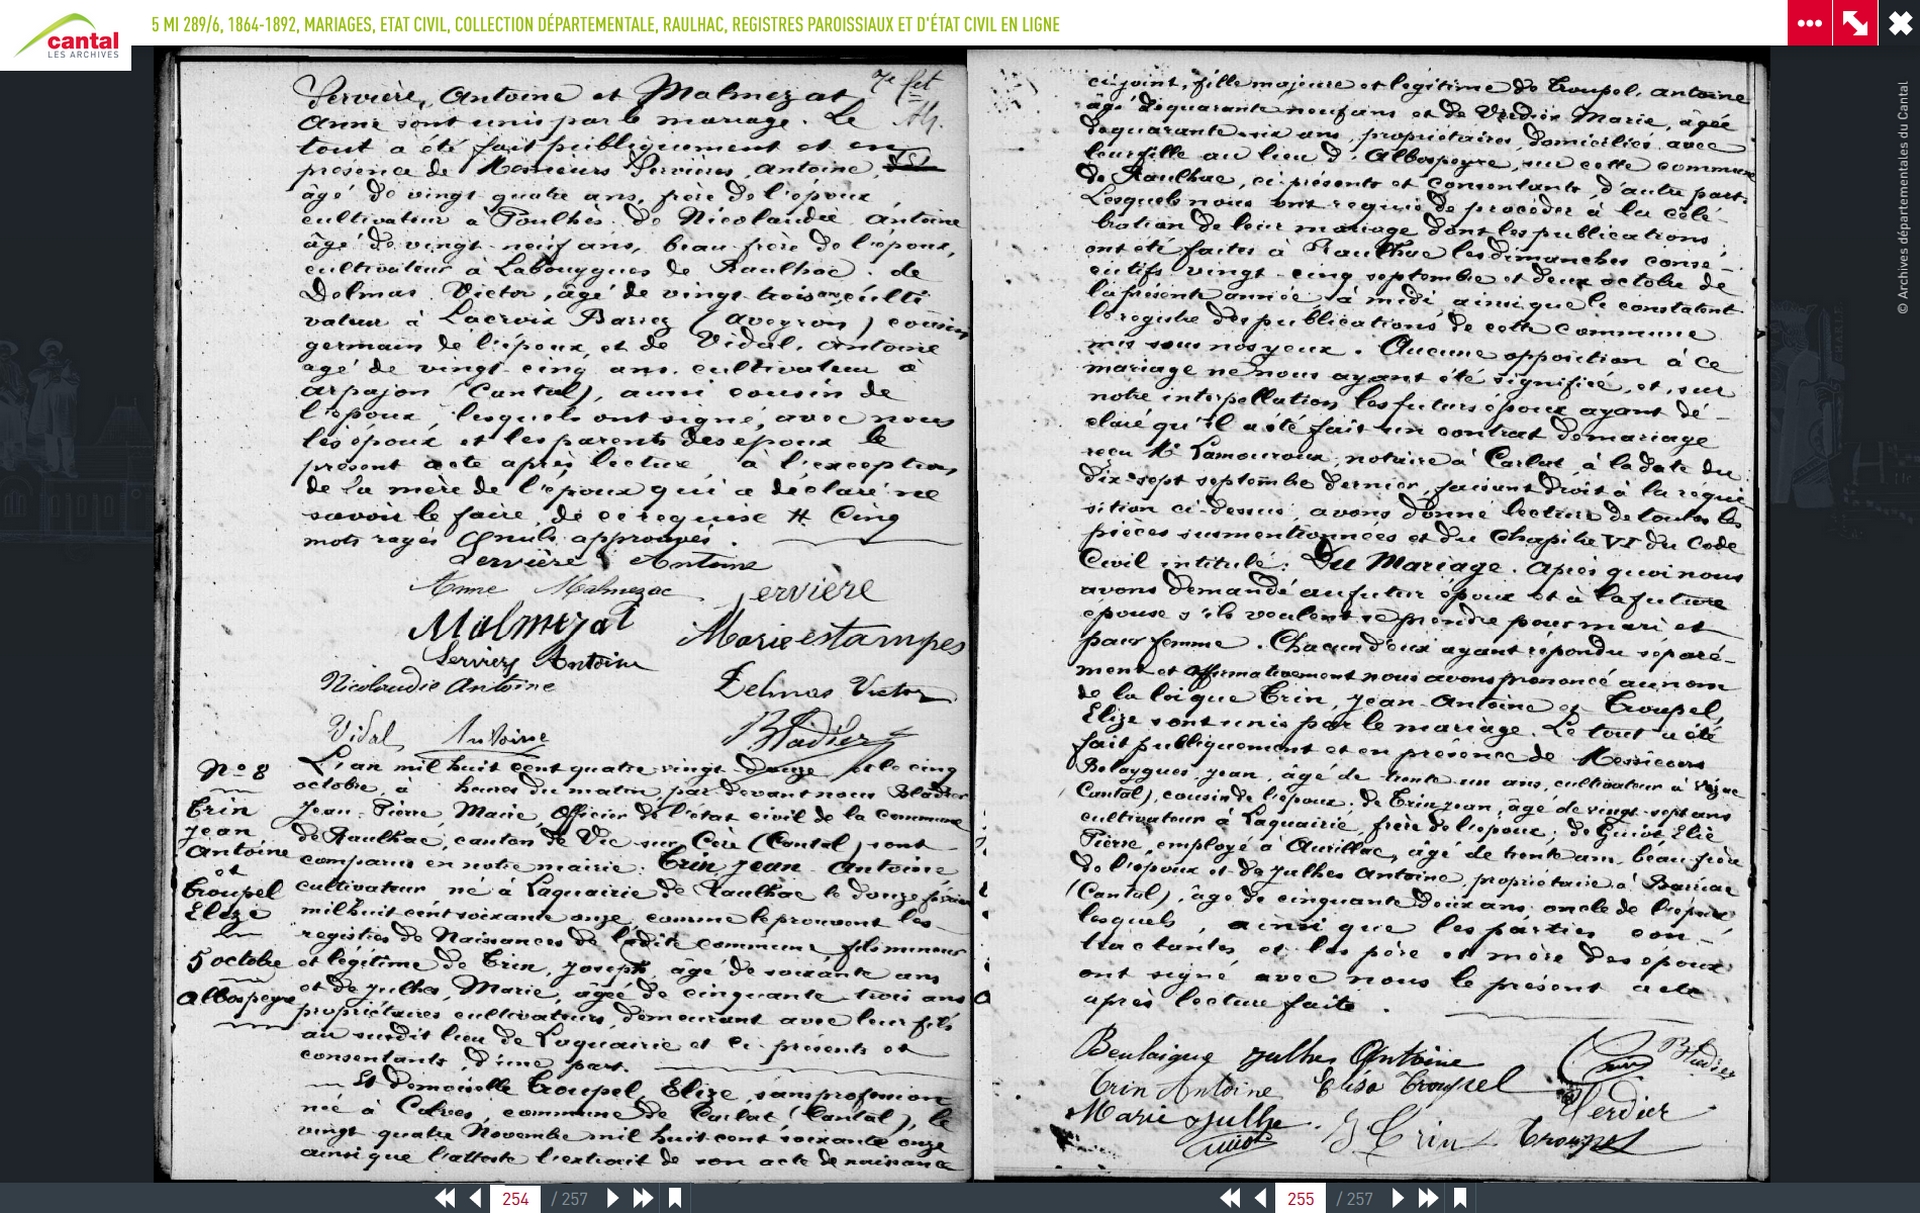 cantal
LES ARCHIVES
5 MI 289/6, 1864-1892, MARIAGES, ETAT CIVIL, COLLECTION DÉPARTEMENTALE, RAULHAC, REGISTRES PAROISSIAUX ET D'ÉTAT CIVIL EN LIGNE
7e fet
Servière, Antoine et Malmezat
Anne sont unis par le mariage. Le
tout a été fait publiquement et en
présence de Messieurs Servières, Antoine,
âgé de vingt quatre ans, frère de l'époux
cultivateur à Poulhès. de Nicolaudie Antoine
âgé de vingt-neuf ans, beau-frère de l'époux,
cultivateur à Labouygues de Raulhac. de
Delmas Victor, âgé de vingt trois ans, culti
vateur à Lacroix Barrez (Aveyron) cousin
germain de l'époux, et de Vidal, Antoine
agé de vingt-cinq ans. cultivateur à
Arpajon (Cantal), aussi cousin de
l'époux, lesquels ont signé, avec nous
les époux et les parents des époux le
présent acte après lecture, à l'exception
de la mère de l'époux qui a déclaré ne
savoir le faire, de ce requise # Cinq
mots rayés nuls approuvés.
Servière Antoine
Anne Malmezac Servière
Malmezat Marie estampes
Servières Antoine
Nicolaudie Antoine Delmas Victor
Vidal Antoine Bladier
No 8
Trin
Jean
Antoine
et
Troupel
Elize
5 octobre
Albospeyre
L'an mil huit cent quatre vingt-douze, et le cinq
octobre, à heures du matin par devant nous Bladier
Jean-Pierre, Maire, Officier de l'état civil de la commune
de Raulhac, canton de Vic sur Cère (Cantal) sont
comparus en notre mairie: Trin Jean-Antoine,
cultivateur né à Laquairie de Raulhac le douze février
mil huit cent soixante onze, comme le prouvent les
registres de Naissances de ladite commune, fils mineur
et légitime de Trin, Joseph, âgé de soixante ans
et de Julhes, Marie, âgée de cinquante-trois ans
propriétaires cultivateurs, demeurant avec leur fils
au susdit lieu de Laquairie et ci-présents et
consentants, d'une part.
Et Demoiselle Troupel, Elize, sans profession
née à Calves, commune de Carlat (Cantal), le
vingt quatre Novembre mil huit cent soixante onze
ainsi que l'atteste l'extrait de son acte de naissance
ci-joint, fille majeure et légitime de Troupel, Antoine
âgé de quarante neuf ans et de Verdier Marie, âgée
de quarante-six ans, propriétaires, domiciliés avec
leur fille au lieu d'Albospeyre, sur cette commune
de Raulhac, ci-présents et consentants, d'autre part.
Lesquels nous ont requis de procéder à la célé-
bration de leur mariage dont les publications
ont été faites à Raulhac les dimanches consé-
cutifs vingt-cinq septembre et deux octobre de
la présente année, à midi ainsi que le constatent
le registre des publications de cette commune
mis sous nos yeux. Aucune opposition à ce
mariage ne nous ayant été signifiée, et, sur
notre interpellation, les futurs époux ayant dé-
claré qu'il a été fait un contrat de mariage
reçu Me Lamouroux, notaire à Carlat, à la date du
dix-sept septembre dernier, faisant droit à la réqui
sition ci-dessus, avons donné lecture de toutes les
pièces susmentionnées et du Chapitre VI du Code
Civil intitulé: Du Mariage. Après quoi nous
avons demandé au futur époux et à la future
épouse s'ils veulent se prendre pour mari et
pour femme. Chacun d'eux ayant répondu séparé-
ment et affirmativement nous avons prononcé au nom
de la loi que Trin, Jean-Antoine et Troupel,
Elize sont unis par le mariage. Le tout a été
fait publiquement et en présence de Messieurs
Belaygues, Jean, âgé de trente-un ans, cultivateur à
Cantal), cousin de l'époux; de Trin Jean, âgé de vingt-sept ans
cultivateur à Laquairie, frère de l'époux; de Guiot Elie
Pierre, employé à Aurillac, âgé de trente ans, beau-frère
de l'époux et de Julhes Antoine, propriétaire à Barriac
(Cantal), âgé de cinquante deux ans oncle de l'époux
lesquels, ainsi que les parties con-
tractantes et les père et mère des époux
ont signé avec nous le présent acte
après lecture faite.
Beulaigue Julhes Antoine Bladier
Trin Antoine Elisa Troupel Verdier
Marie Julhe J Trin Troupel
Guiot
© Archives départementales du Cantal
254 / 257
255 / 257